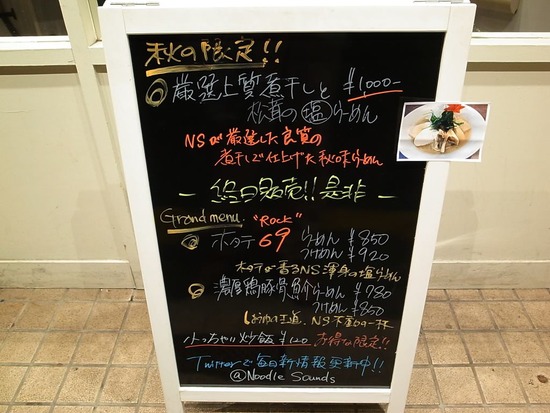 秋の限定!!
◎厳選上質煮干しと ¥1,000-
松茸の塩らーめん
NSが厳選した良質の
煮干しで仕上げた秋の味らーめん
— 終日販売!!是非 —
Grand menu. "Rock"
◎ホタテ69 らーめん ¥850
つけめん ¥920
ホタテが香るNS渾身の塩らーめん
◎濃厚鶏豚骨魚介らーめん ¥780
つけめん ¥850
しょうゆの王道、NS不動の一杯
小っちゃい炒飯 ¥120 お得な限定!!
Twitterで毎日新情報更新中!!
@Noodle Sounds